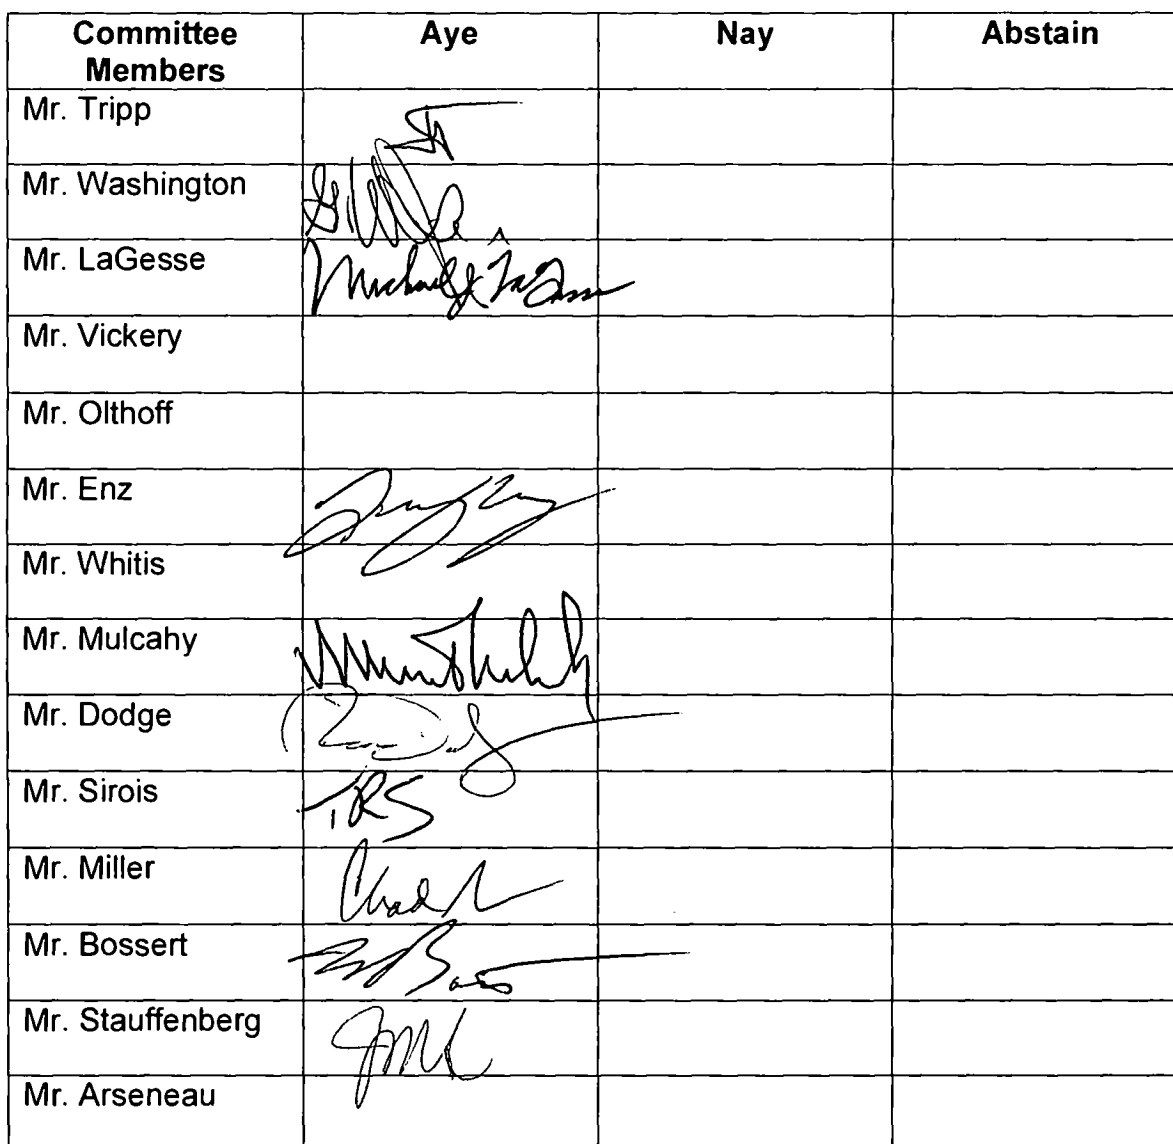 Committee Members Aye Nay Abstain
Mr. Tripp
Mr. Washington
Mr. LaGesse Michael J. LaGesse
Mr. Vickery
Mr. Olthoff
Mr. Enz
Mr. Whitis
Mr. Mulcahy
Mr. Dodge
Mr. Sirois TRS
Mr. Miller Chad
Mr. Bossert
Mr. Stauffenberg
Mr. Arseneau